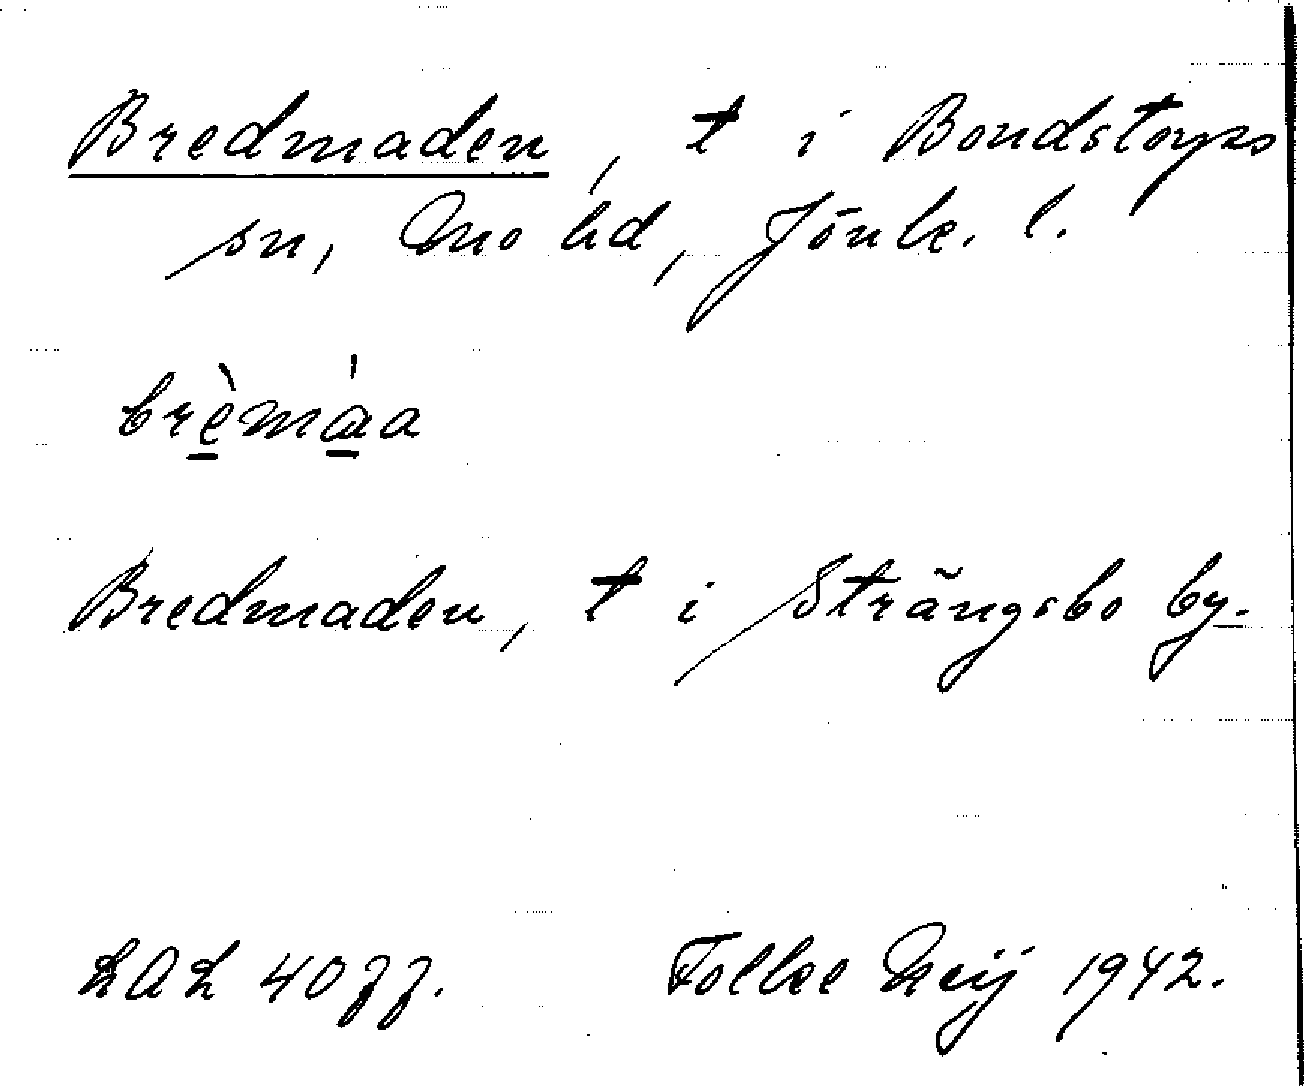 Bredmaden, t i Bondstorps
sn, Mo hd, Jönk. l.
brèmàa
Bredmaden, t i Strängsbo by.
LAL 4077. Folke Neij 1942.